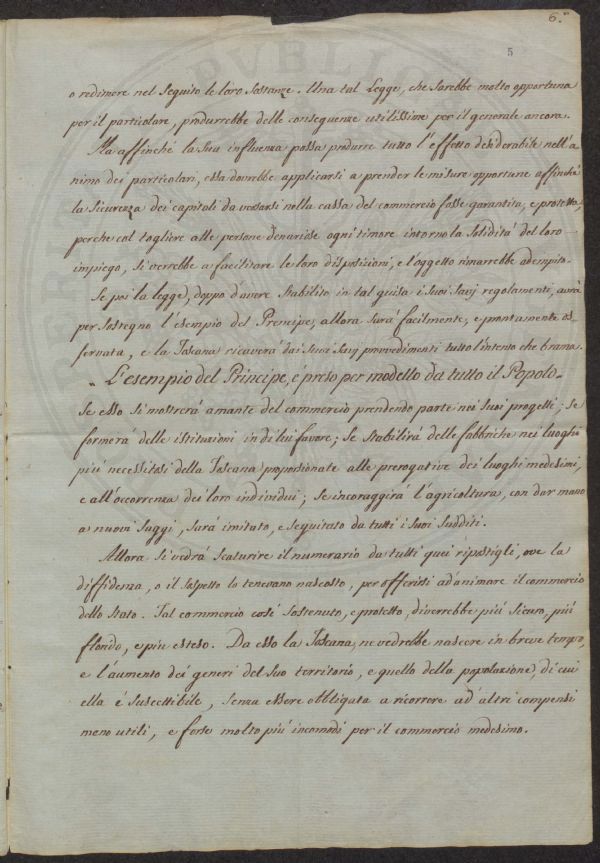 6.
5
o redimere nel seguito le loro sostanze. Una tal Legge, che sarebbe molto opportuna
per il particolare, produrrebbe delle conseguenze utilissime per il generale ancora.
Ma affinchè la sua influenza possa produrre tutto l'effetto desiderabile nell'a
nimo dei particolari, essa dovrebbe applicarsi a prender le misure opportune affinchè
la sicurezza dei capitali da versarsi nella cassa del commercio fosse garantita, e protetta,
perche col togliere alle persone denariose ogni timore intorno la solidità del loro
impiego, si verrebbe a facilitare le loro disposizioni, e l'oggetto rimarrebbe adempito.
Se poi la legge, doppo d'avere stabilito in tal guisa i suoi savj regolamenti, avrà
per sostegno l'esempio del Prencipe, allora sarà facilmente, e prontamente os-
servata, e la Toscana ricaverà dai suoi savj provvedimenti tutto l'intento che brama.
„ L'esempio del Principe, é preso per modello da tutto il Popolo „
Se esso si mostrerà amante del commercio prendendo parte nei suoi progetti; se
formerà delle istituzioni in di lui favore; se stabilirà delle fabbriche nei luoghi
più necessitosi della Toscana proporzionate alle prerogative dei luoghi medesimi,
e all'occorrenza dei loro individui; se incoraggirà l'agricoltura, con dar mano
a nuovi saggi, sarà imitato, e seguitato da tutti i suoi sudditi.
Allora si vedrà scaturire il numerario da tutti quei ripostigli, ove la
diffidenza, o il sospetto lo tenevano nascosto, per offerirsi ad animare il commercio
dello Stato. Tal commercio così sostenuto, e protetto, diverrebbe più sicuro, più
florido, e più esteso. Da esso la Toscana, ne vedrebbe nascere in breve tempo,
e l'aumento dei generi del suo territorio, e quello della popolazione, di cui
ella é suscettibile, senza essere obbligata a ricorrere ad altri compensi
meno utili, e forse molto più incomodi per il commercio medesimo.